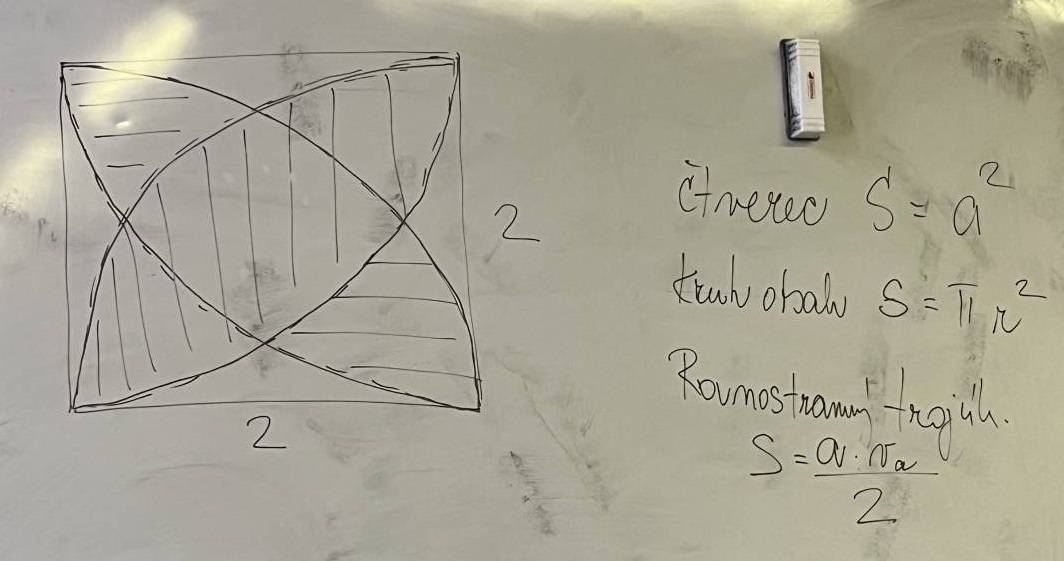 2
2
čtverec S = a²
kruh obsah S = π r²
Rovnostranný trojúh.
S = a · vₐ / 2